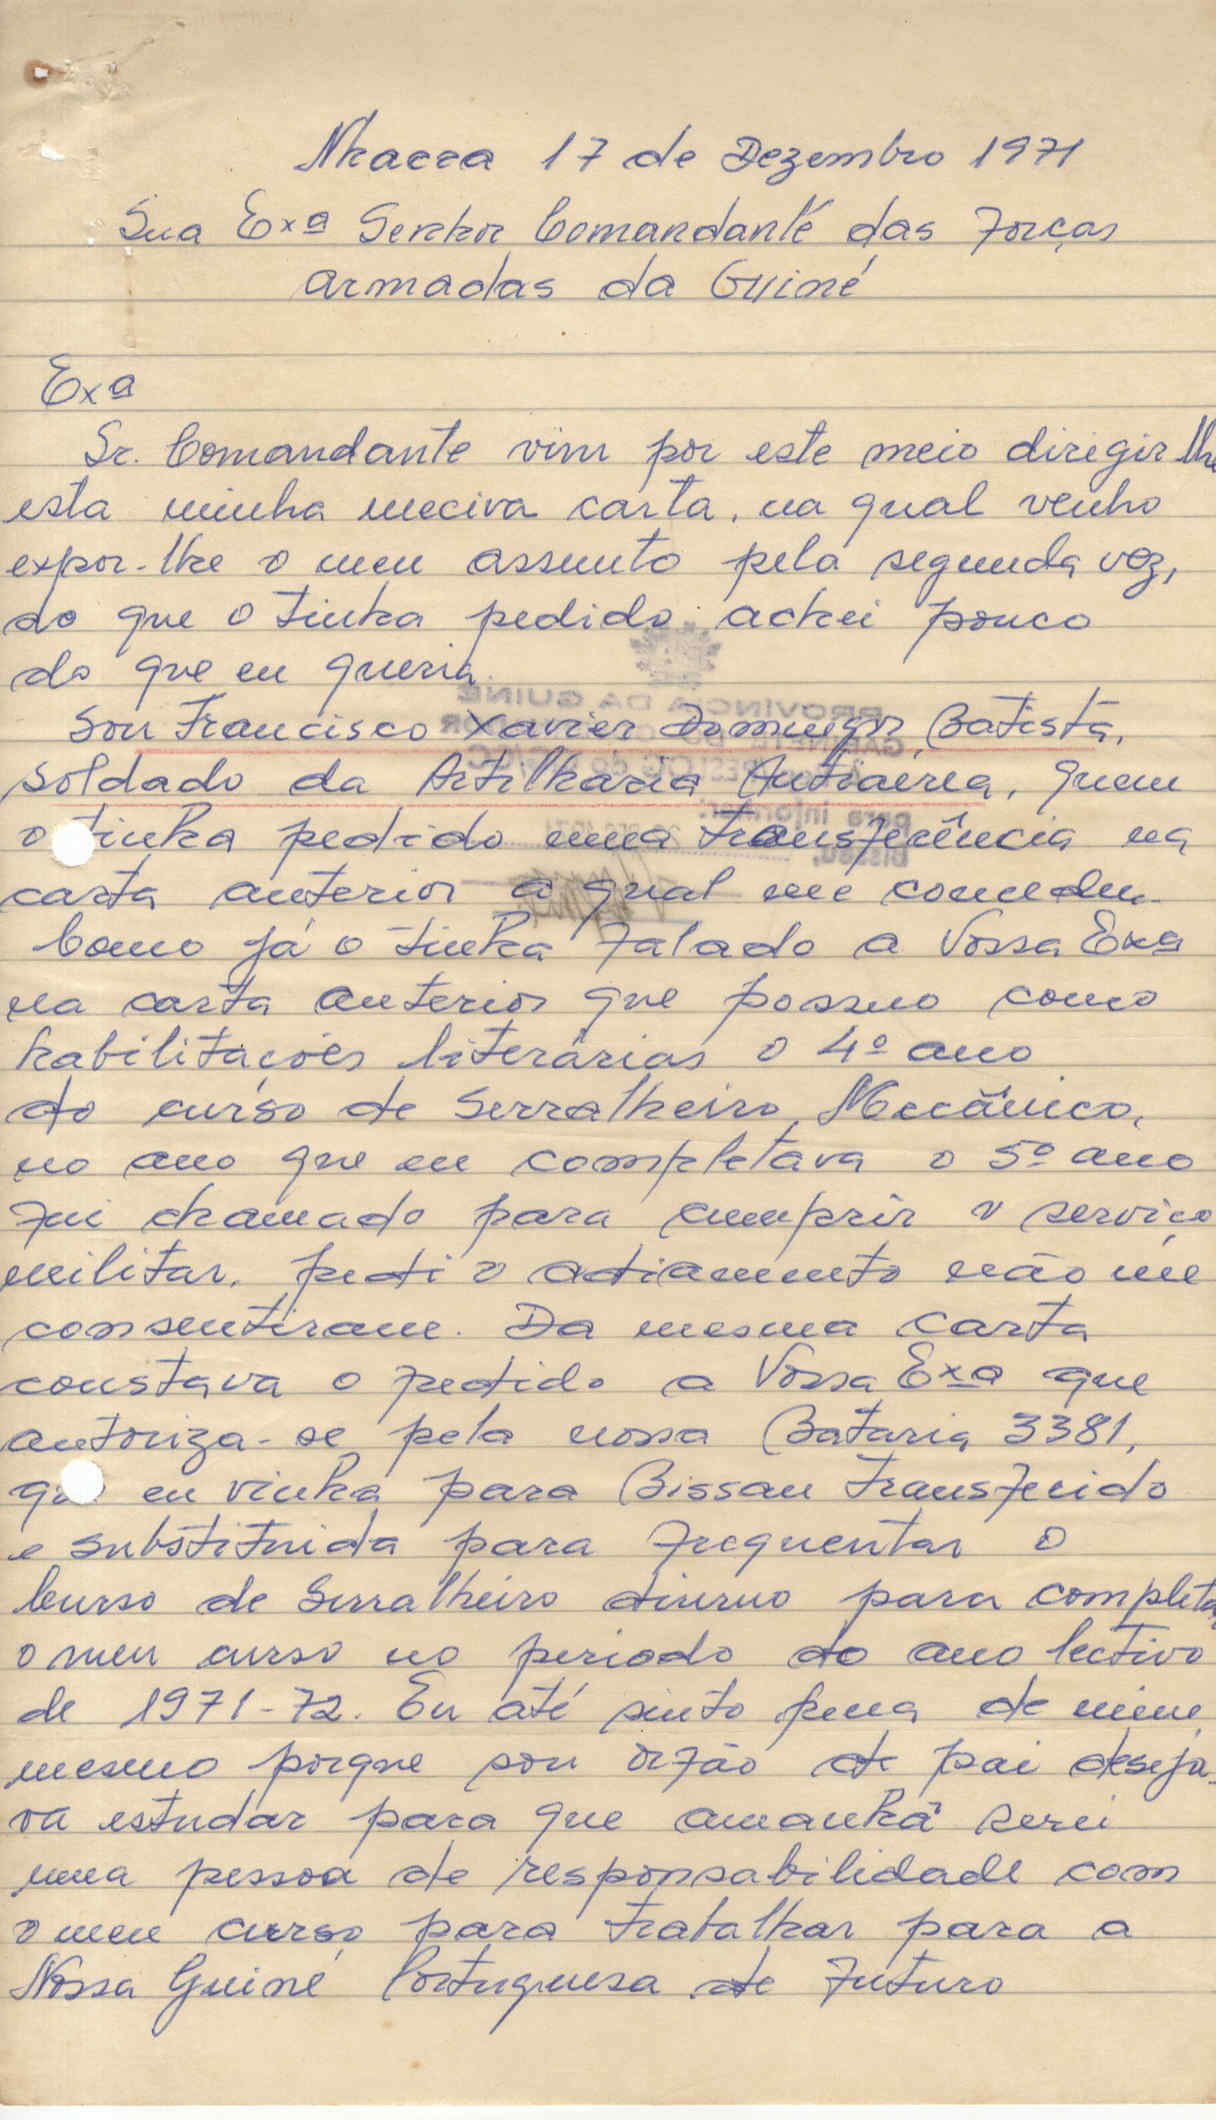 Nhacra 17 de Dezembro 1971
Sua Exª Senhor Comandante das Forças
armadas da Guiné
Exª
Sr. Comandante vim por este meio dirigir lhe
esta minha meciva carta, na qual venho
expor-lhe o meu assunto pela segunda vez,
do que o tinha pedido achei pouco
do que eu queria.
Sou Francisco Xavier Domingos Batista,
soldado da Artilharia Antiaérea, quem
o tinha pedido uma transferência na
carta anterior a qual me concedeu.
Como já o tinha falado a Vossa Exª
na carta anterior que possuo como
habilitações literárias o 4º ano
do curso de Serralheiro Mecânico,
no ano que eu completava o 5º ano
fui chamado para cumprir o serviço
militar, pedi o adiamento não me
consentiram. Da mesma carta
constava o pedido a Vossa Exª que
autoriza-se pela nossa Bataria 3381,
que eu vinha para Bissau transferido
e substituida para frequentar o
Curso de Serralheiro diurno para completar
o meu curso no periodo do ano lectivo
de 1971-72. Eu até sinto pena de mim
mesmo porque sou órfão de pai deseja-
va estudar para que amanhã serei
uma pessoa de responsabilidade com
o meu curso para trabalhar para a
Nossa Guiné Portuguesa de Futuro
PROVÍNCIA DA GUINÉ
para informar.
Bissau,